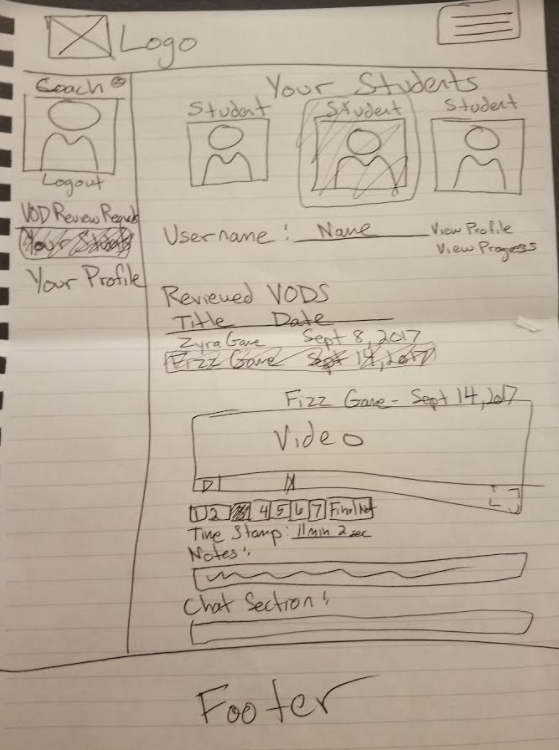 Logo
Coach
Logout
VOD Review Request
Your Students
Your Profile
Your Students
Student
Student
Student
Username: Name
View Profile
View Progress
Reviewed VODS
Title Date
Zyra Game Sept 8, 2017
Fizz Game Sept 14, 2017
Fizz Game - Sept 14, 2017
Video
1 2 4 5 6 7 Final Note
Time Stamp: 11min 2sec
Notes:
Chat Section:
Footer